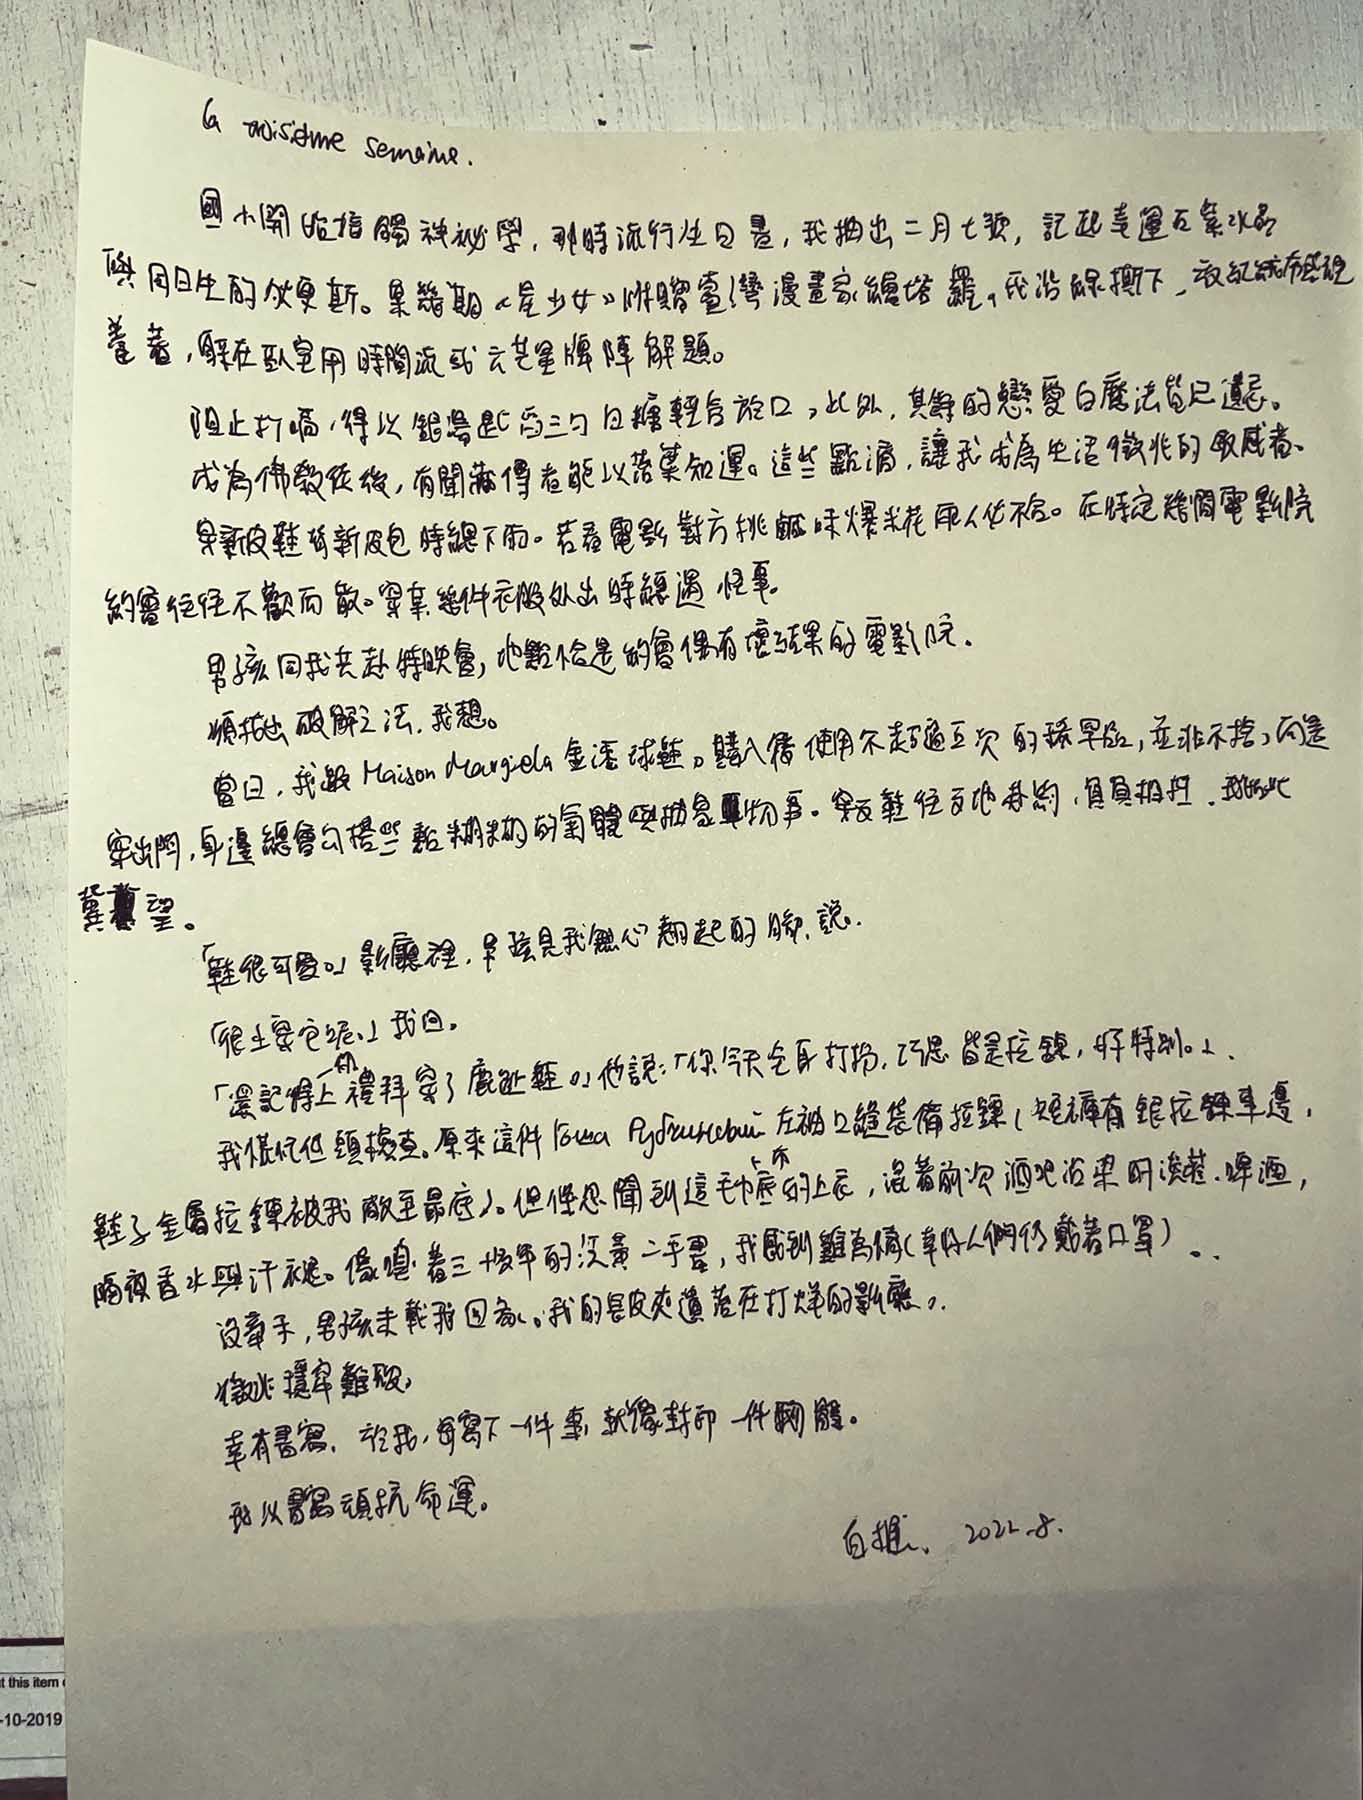 la troisième semaine.
國小開始接觸神祕學，那時流行生日書，我抽出二月七號，記起幸運石紫水晶
與同日生的狄更斯。某幾期《星少女》附贈臺灣漫畫家繪塔羅。我沿線撕下，
養著，躲在臥室用時間流或六芒星牌陣解題。
阻止打嗝，得以銀湯匙舀三勺白糖輕含於口，此外，其餘的戀愛白魔法皆已遺忘。
成為佛教徒後，有聞藏傳者能以落葉知運。這些點滴，讓我成為生活徵兆的敏感者。
穿新皮鞋背新皮包時總下雨。若看電影對方挑鹹味爆米花兩人必不合。在特定幾間電影院
約會往往不歡而散。穿某幾件衣服外出時總遇怪事。
男孩同我共赴特映會，地點恰是約會偶有壞結果的電影院。
須找出破解之法，我想。
當日，我蹬Maison Margiela金漆球鞋。購入後使用不超過五次的稀罕品，並非不捨，而是
穿出門，身邊總會勾搭些黏糊糊的氣體與抽象物事。穿這鞋往這地赴約，負負相抵，我如此
冀望。
「鞋很可愛。」影廳裡，男孩見我無心翹起的腳，說。
「很土要它呢。」我回。
「還記得上個禮拜穿了鹿趾鞋。」他說：「你今天全身打扮，巧思皆是拉鍊，好特別。」
我慌忙低頭檢查。原來這件Гоша Рубчинский左袖口縫裝備拉鍊（短褲有銀拉鍊車邊，
鞋子金屬拉鍊被我敞至最底）。但僅忽聞到這毛巾底的上衣，混著前次酒吧沾染的淡菸、啤酒，
隔夜香水與汗褪。像嗅著三十幾年的泛黃二手書，我感到難為情（幸好人們仍戴著口罩）。
沒牽手，男孩未載我回家。我的長皮夾遺落在打烊的影廳。
徵兆環牢難破，
幸有書寫，於我，每寫下一件事，就像封印一件胸骸。
我以書寫頑抗命運。
白樵、2022.8.
t this item
-10-2019